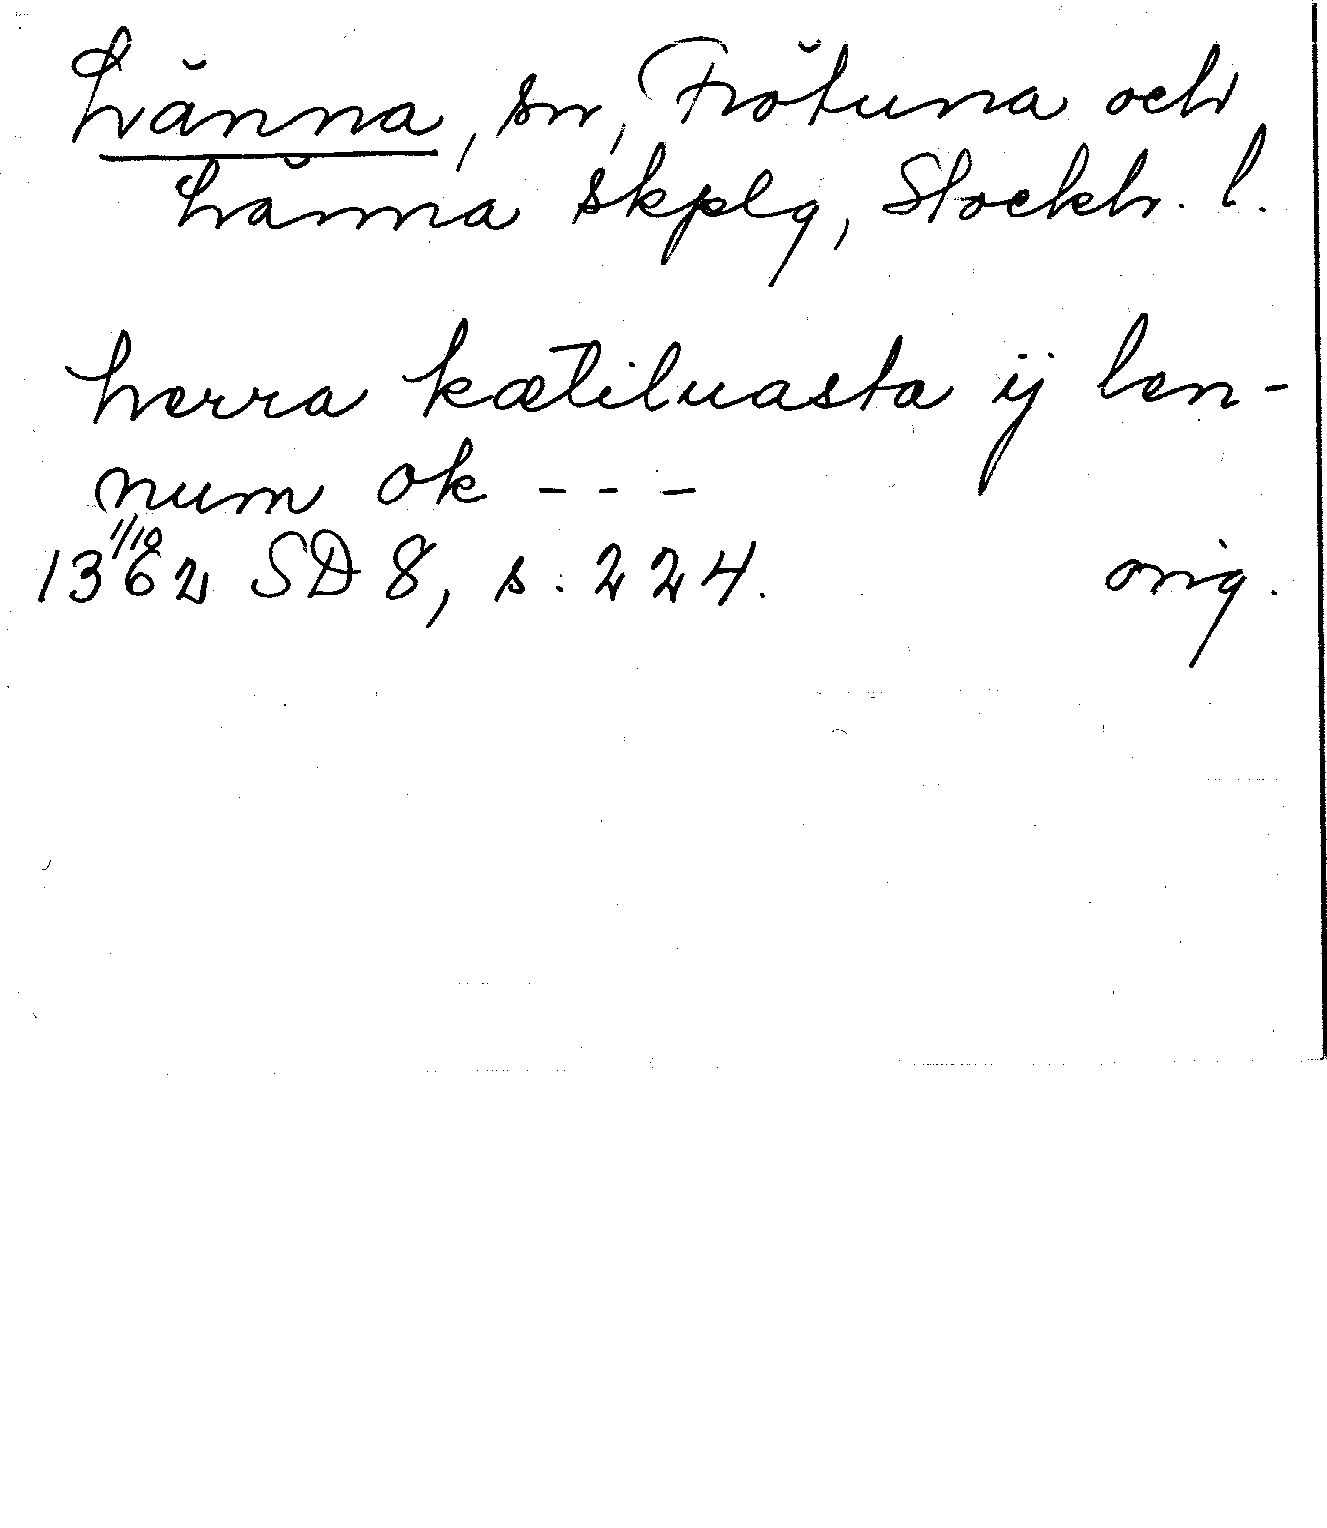 Länna, sn, Frötuna och
Länna skplg, Stockh. l.
herra kætiluasta ij læn-
num ok ---
13 1/10 62 SD 8, s. 224. orig.